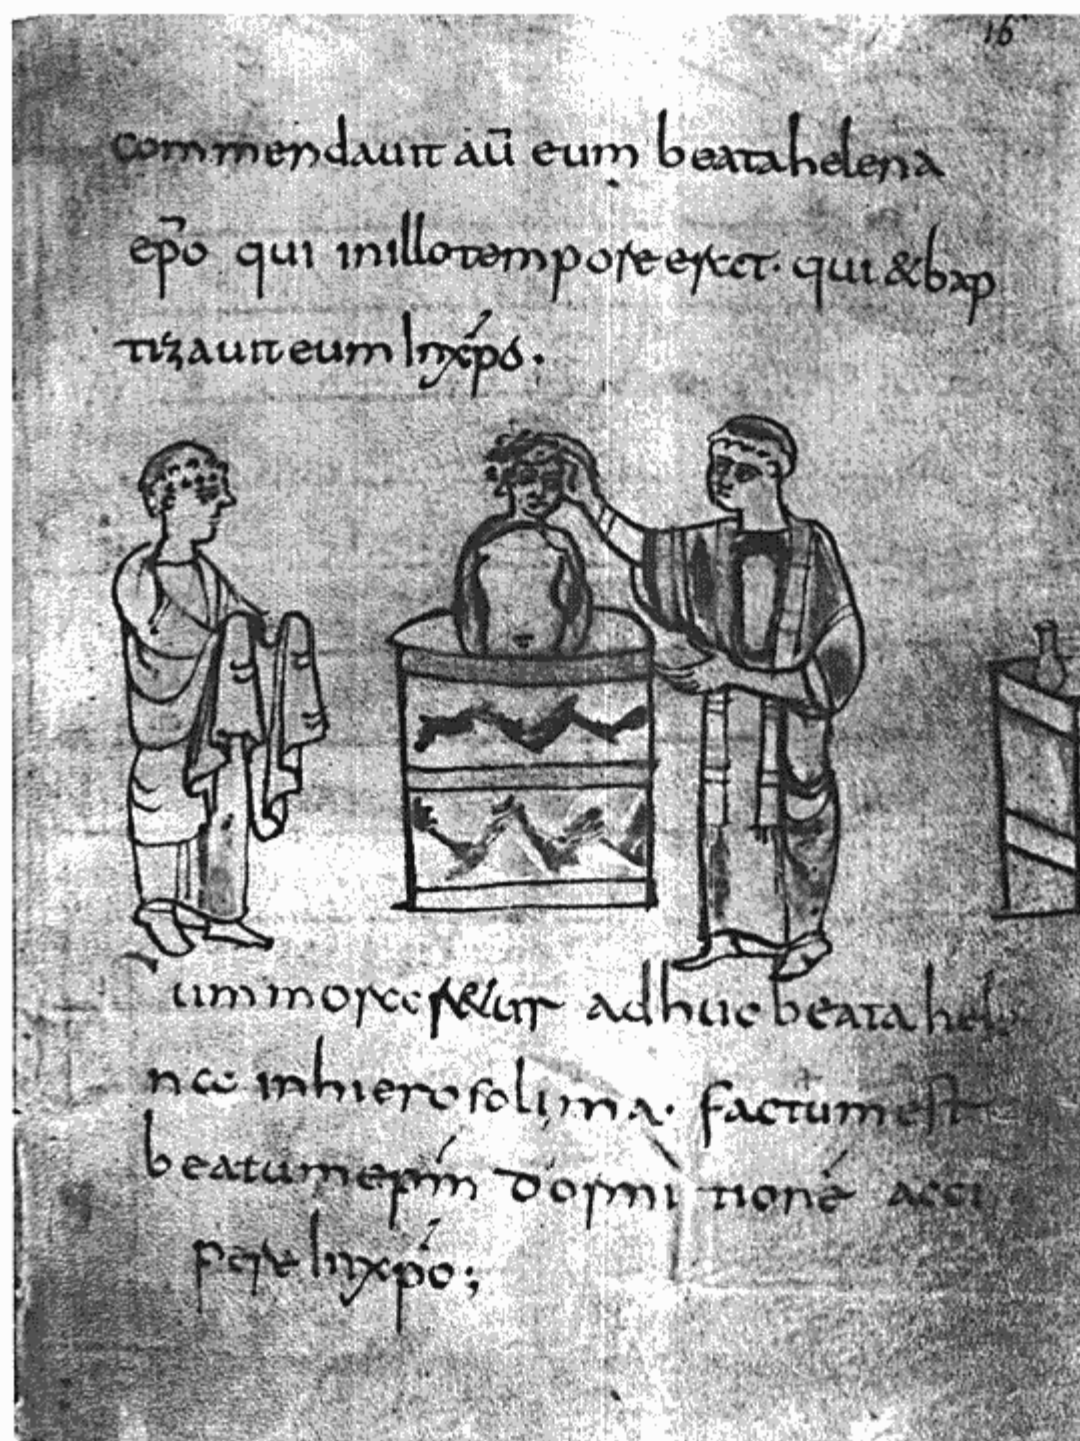 16
commendauit aū eum beata helena
ep̄o qui in illo tempore erat· qui & bap
tizauit eum In xp̄o·
um moraretur adhuc beata hele
nae in hierosolima· factum est
beatum ep̄m dormitionē acci
pere In xp̄o;